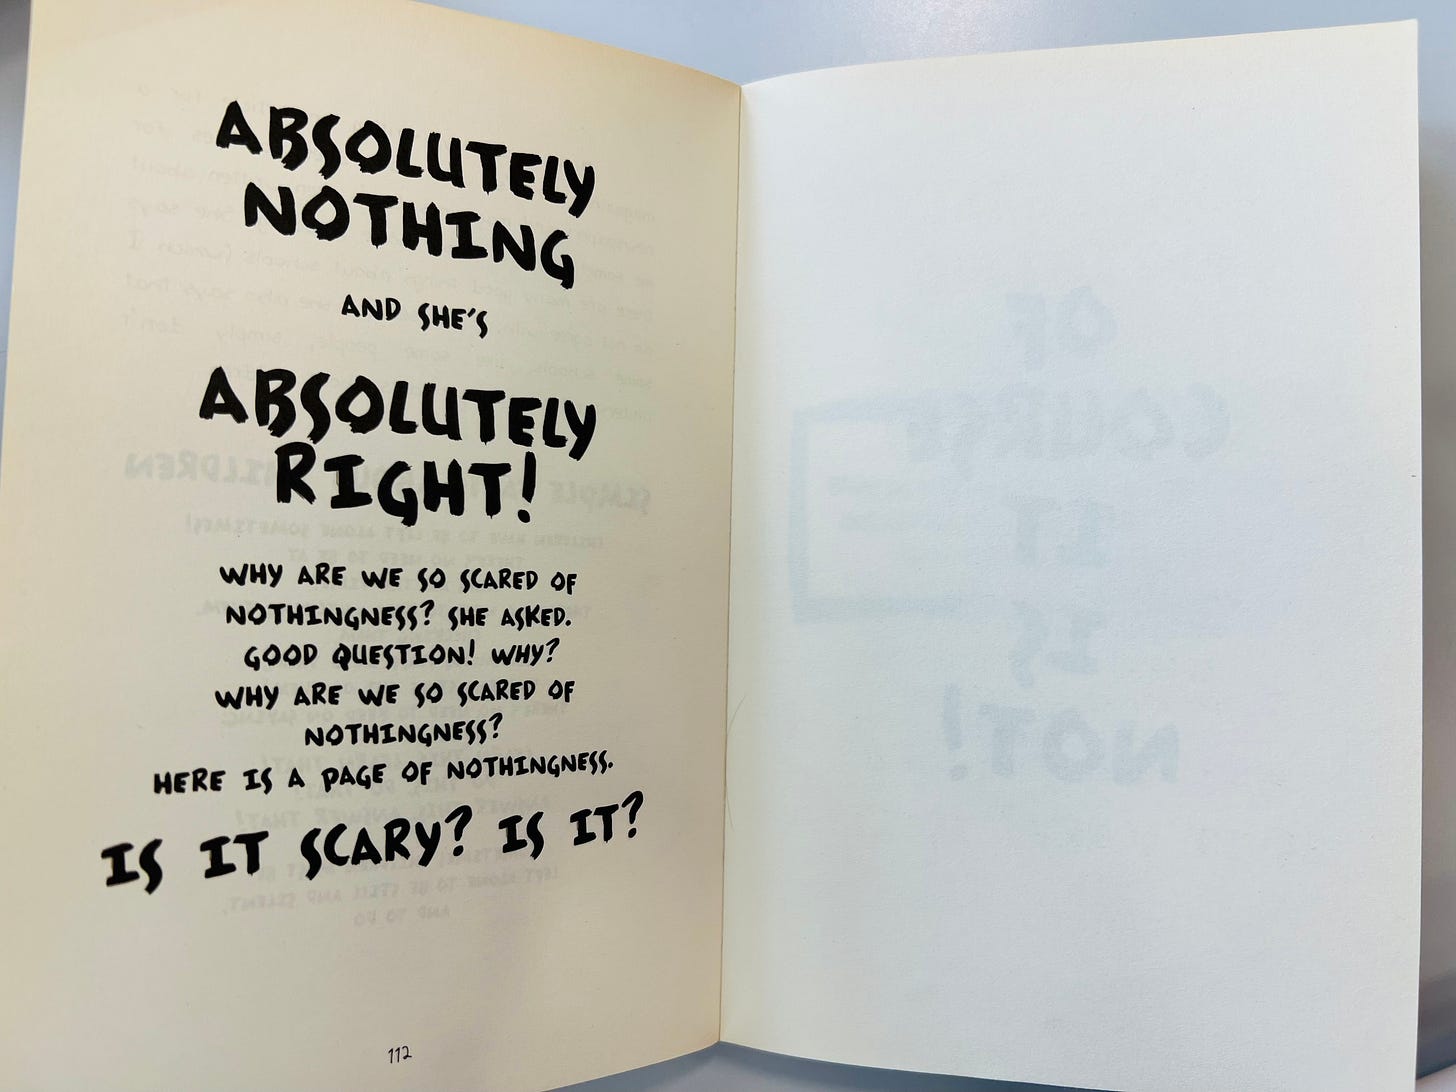 ABSOLUTELY
NOTHING
AND SHE'S
ABSOLUTELY
RIGHT!
WHY ARE WE SO SCARED OF
NOTHINGNESS? SHE ASKED.
GOOD QUESTION! WHY?
WHY ARE WE SO SCARED OF
NOTHINGNESS?
HERE IS A PAGE OF NOTHINGNESS.
IS IT SCARY? IS IT?
112
OF
COURSE
IT
IS
NOT!